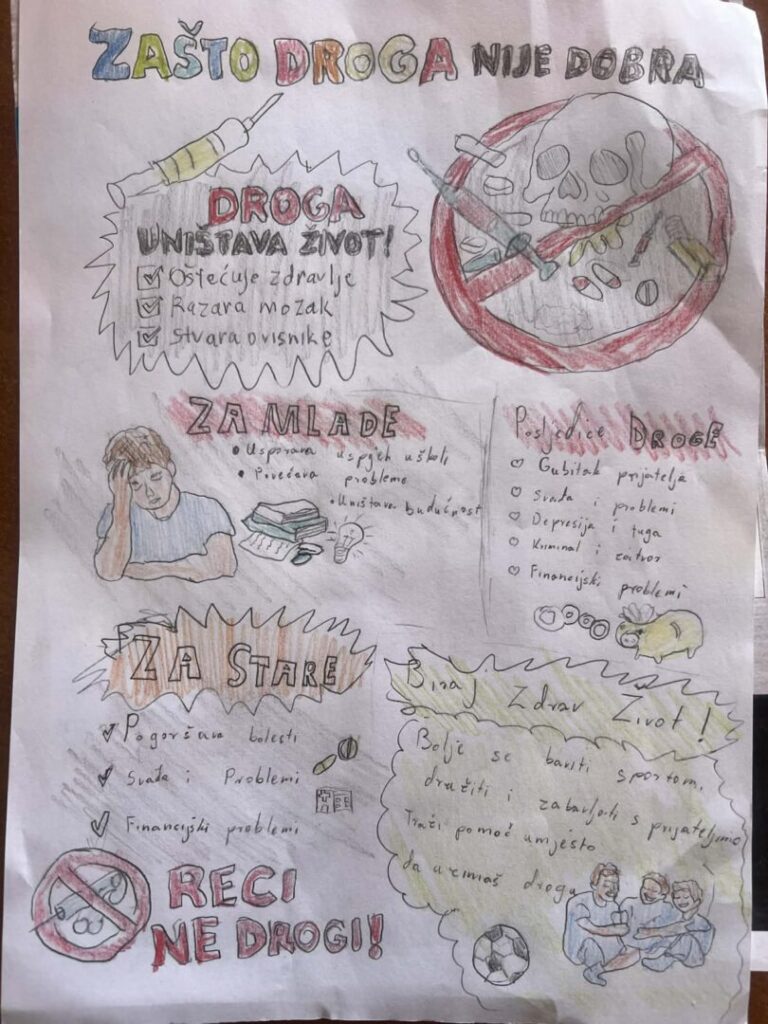 ZAŠTO DROGA NIJE DOBRA
DROGA
UNIŠTAVA ŽIVOT!
Oštećuje zdravlje
Razara mozak
Stvara ovisnike
ZA MLADE
Usporava uspjeh u školi
Povećava probleme
Uništava budućnost
Posljedice DROGE
Gubitak prijatelja
Svađa i problemi
Depresija i tuga
Kriminal i zatvor
Financijski problemi
ZA STARE
Pogoršava bolesti
Svađa i Problemi
Financijski problemi
Biraj Zdrav Život!
Bolje se baviti sportom,
družiti i zabavljati s prijateljima
Traži pomoć umjesto
da uzimaš drogu
RECI
NE DROGI!